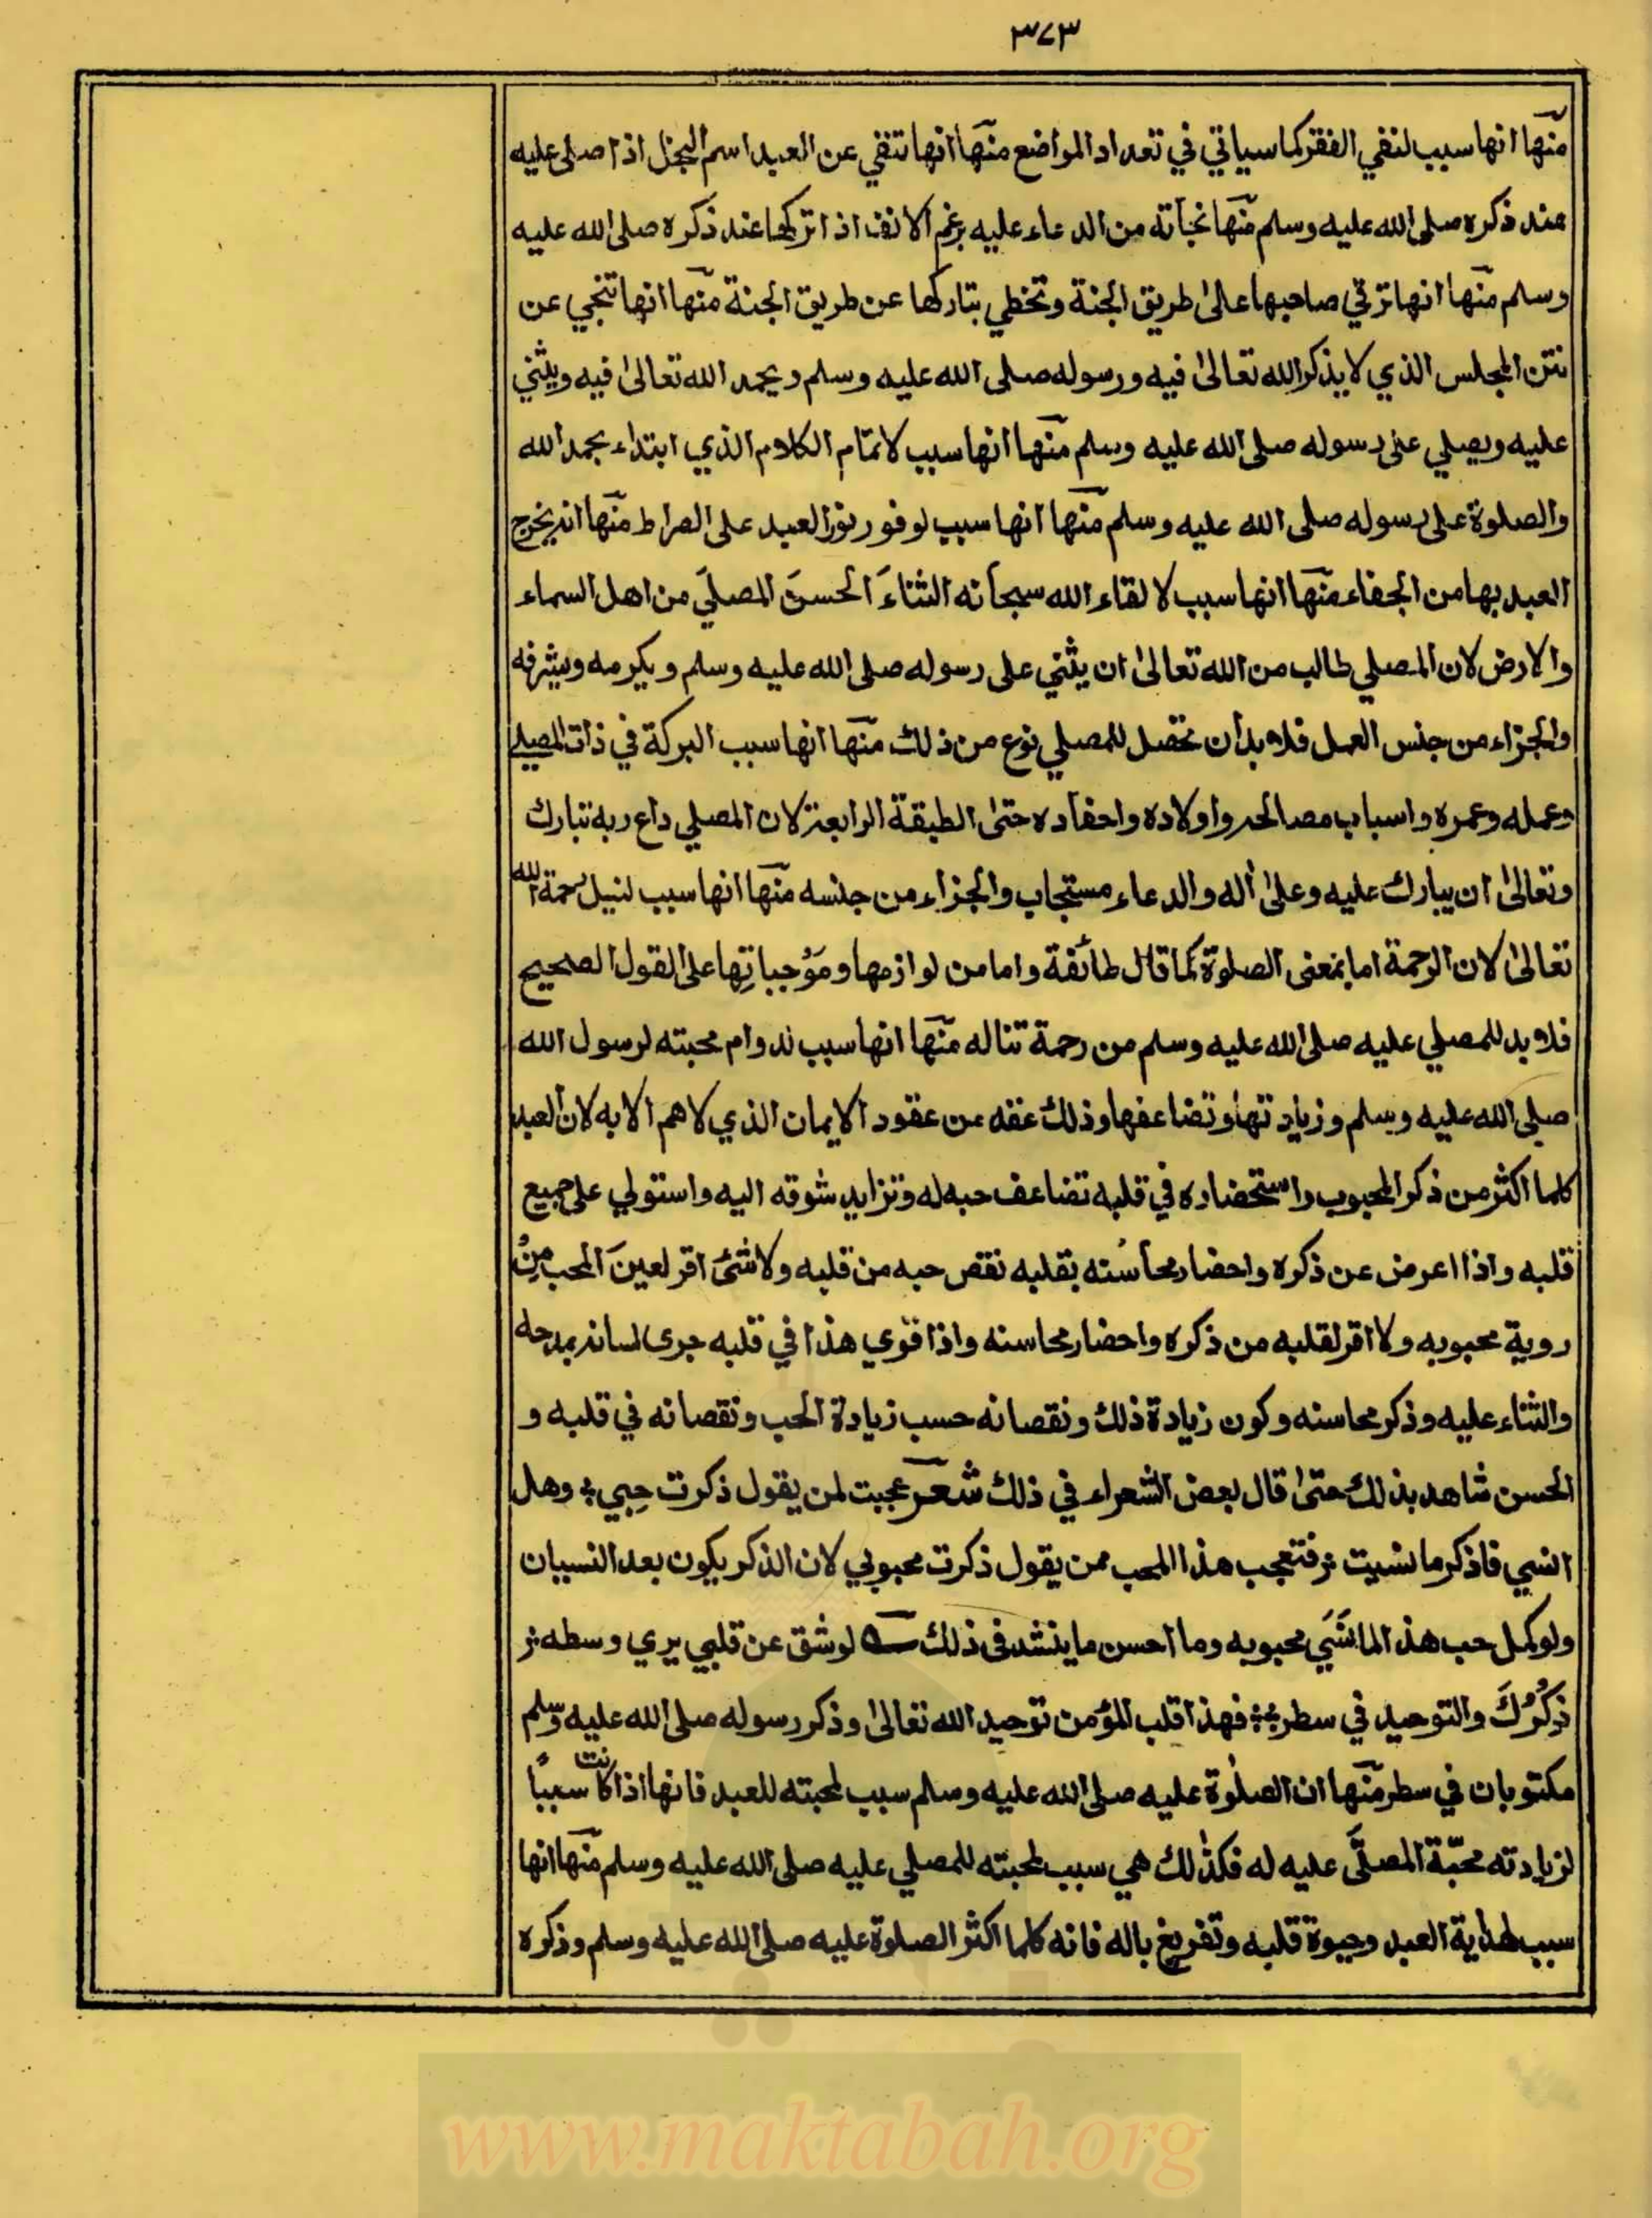 ٣٧٣
منها انها سبب لنفي الفقر كما سياتي في تعداد المواضع منها انها تنفي عن العبد اسم البخل اذا صلى عليه
عند ذكره صلى الله عليه وسلم منها نجاته من الدعاء عليه برغم الانف اذا تركها عند ذكره صلى الله عليه
وسلم منها انها ترقي صاحبها على طريق الجنة وتخطي بتاركها عن طريق الجنة منها انها تنجي عن
نتن المجلس الذي لا يذكر الله تعالىٰ فيه ورسوله صلى الله عليه وسلم ويحمد الله تعالىٰ فيه ويثني
عليه ويصلي على رسوله صلى الله عليه وسلم منها انها سبب لاتمام الكلام الذي ابتداء بحمد الله
والصلوة على رسوله صلى الله عليه وسلم منها انها سبب لوفور نور العبد على الصراط منها انه يخرج
العبد بها من الجفاء منها انها سبب لالقاء الله سبحانه الثناءَ الحسنَ المصلي من اهل السماء
والارض لان المصلي طالب من الله تعالىٰ ان يثني على رسوله صلى الله عليه وسلم ويكرمه ويشرفه
والجزاء من جنس العمل فلا بد ان تحصل للمصلي نوع من ذلك منها انها سبب البركة في ذات المصلي
وعمله وعمره واسباب مصالحه واولاده واحفاده حتىٰ الطبقة الرابعة لان المصلي داع ربه تبارك
وتعالىٰ ان يبارك عليه وعلىٰ اله والدعاء مستجاب والجزاء من جنسه منها انها سبب لنيل رحمة الله
تعالىٰ لان الرحمة اما بمعنى الصلوة كما قال طائفة واما من لوازمها ومُوجباتِها على القول الصحيح
فلا بد للمصلي عليه صلى الله عليه وسلم من رحمة تناله منها انها سبب لدوام محبته لرسول الله
صلى الله عليه وسلم وزيادتها وتضاعفها وذلك عقد من عقود الايمان الذي لا هم الا به لان العبد
كلما اكثر من ذكر المحبوب واستحضاره في قلبه تضاعف حبه له وتزايد شوقه اليه واستولي على جميع
قلبه واذا اعرض عن ذكره واحضار محاسنه بقلبه نقص حبه من قلبه ولا شئ اقر لعينَ المحب مِنْ
روية محبوبه ولا اقر لقلبه من ذكره واحضار محاسنه واذا قوي هذا في قلبه جرى لسانه بمدحه
والثناء عليه وذكر محاسنه وكون زيادة ذلك ونقصانه حسب زيادة الحب ونقصانه في قلبه و
الحسن شاهد بذلك حتىٰ قال بعض الشعراء في ذلك شعر عجبت لمن يقول ذكرت حِبي ؛ وهل
انسي فاذكر ما نسيت ؛ فتعجب هذا المحب ممن يقول ذكرت محبوبي لان الذكر يكون بعد النسيان
ولو كمل حب هذا لما نَسَي محبوبه وما احسن ما ينشد في ذلك لو شق عن قلبي يري وسطه ؛
ذِكْرُكَ والتوحيد في سطر ؛ فهذا قلب المؤمن توحيد الله تعالىٰ وذكر رسوله صلى الله عليه وسلم
مكتوبان في سطر منها ان الصلوة عليه صلى الله عليه وسلم سبب لمحبته للعبد فانها اذا كانت سببًا
لزيادته محبّة المصلَّى عليه له فكذلك هي سبب لمحبته للمصلي عليه صلى الله عليه وسلم منها انها
سبب لهداية العبد وحيوة قلبه وتفريغ باله فانه كلما اكثر الصلوة عليه صلى الله عليه وسلم وذكره
www.maktabah.org